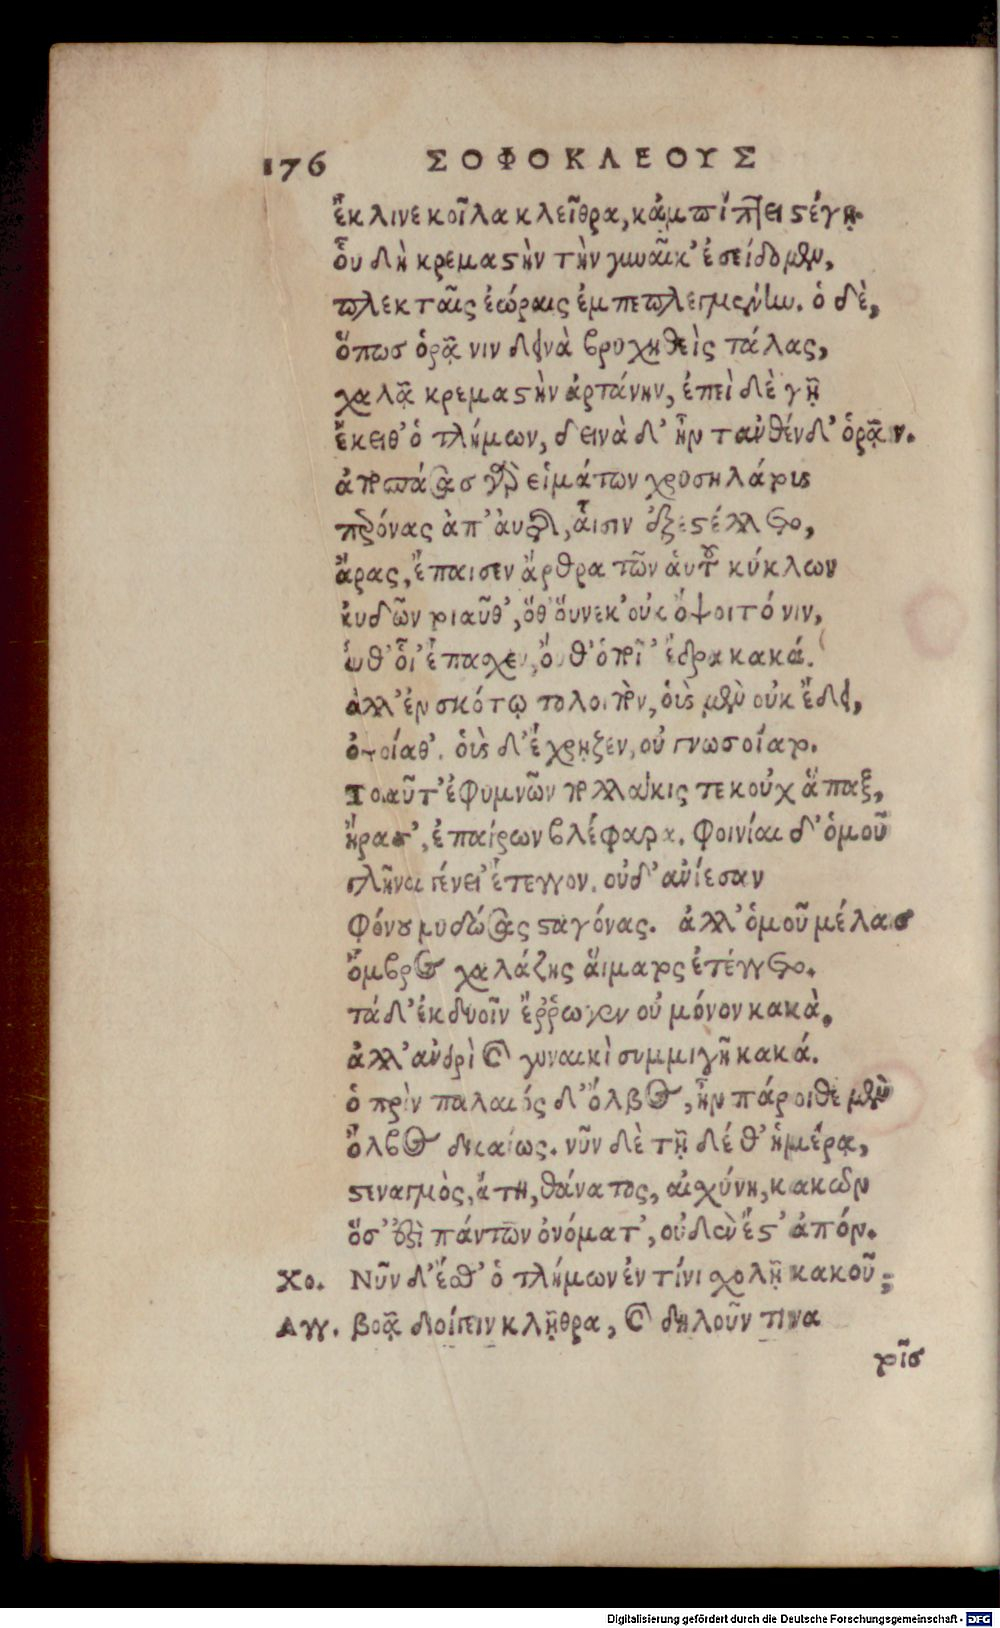 176 ΣΟΦΟΚΛΕΟΥΣ
ἔκλινε κοῖλα κλεῖθρα, κἀμπίπτει στέγῃ.
οὗ δὴ κρεμαστὴν τὴν γυναῖκ' ἐσείδομεν,
πλεκταῖς ἐώραις ἐμπεπλεγμένην. ὁ δὲ,
ὅπως ὁρᾷ νιν δεινὰ βρυχηθεὶς τάλας,
χαλᾷ κρεμαστὴν ἀρτάνην, ἐπεὶ δὲ γῇ
ἔκειθ' ὁ τλήμων, δεινὰ δ' ἦν τἀνθένδ' ὁρᾷν.
ἀποσπάσας γὰρ εἱμάτων χρυσηλάτους
περόνας ἀπ' αὐτῆς, αἷσιν ἐξεστέλλετο,
ἄρας, ἔπαισεν ἄρθρα τῶν αὑτοῦ κύκλων
αὐδῶν τοιαῦθ', ὅθ' οὕνεκ' οὐκ ὄψοιτό νιν,
οὔθ' οἷ' ἔπασχεν, οὔθ' ὁποῖ' ἔδρα κακά.
ἀλλ' ἐν σκότῳ τολοιπὸν, οὓς μὲν οὐκ ἔδει,
ὀψοίαθ'. οὓς δ' ἔχρῃζεν, οὐ γνωσοίατ.
Τοιαῦτ' ἐφυμνῶν πολλάκις τε κοὐχ ἅπαξ,
ἤρασ', ἐπαίρων βλέφαρα. φοινίαι δ' ὁμοῦ
γλῆναι γένει' ἔτεγγον. οὐδ' ἀνίεσαν
φόνου μυδώσας σταγόνας. ἀλλ' ὁμοῦ μέλας
ὄμβρος χαλάζης αἵματος ἐτέγγετο.
τάδ' ἐκ δυοῖν ἔῤῥωγεν οὐ μόνον κακὰ.
ἀλλ' ἀνδρὶ καὶ γυναικὶ συμμιγῆ κακά.
ὁ πρὶν παλαιός δ' ὄλβος, ἦν πάροιθε μὲν
ὄλβος δικαίως. νῦν δὲ τῇ δέ θ' ἡμέρᾳ,
στεναγμὸς, ἄτη, θάνατος, αἰσχύνη, κακῶν
ὅσ' ἐστὶ πάντων ὀνόματ', οὐδὲν ἔστ' ἀπόν.
Χο. Νῦν δ' ἔσθ' ὁ τλήμων ἐν τίνι σχολῇ κακοῦ;
Αγγ. βοᾷ διοίγειν κλῇθρα, καὶ δηλοῦν τινα
τοῖς
Digitalisierung gefördert durch die Deutsche Forschungsgemeinschaft - DFG